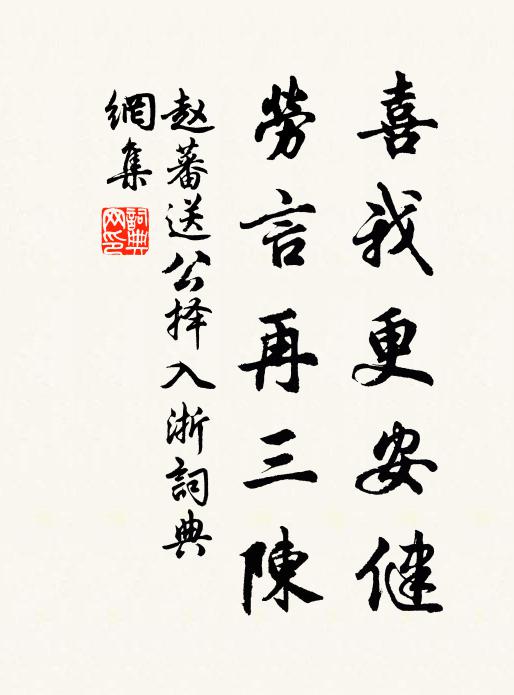 喜我更安健
勞言再三陳
赵蕃送公择入浙詞典
網集
詞典网印